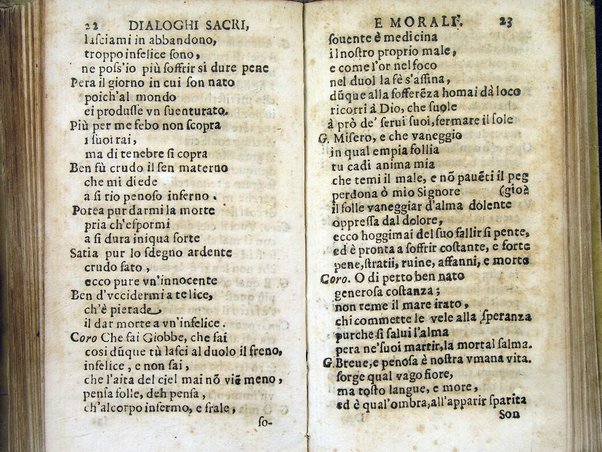 22 DIALOGHI SACRI,
lasciami in abbandono,
troppo infelice sono,
ne poss'io più soffrir sì dure pene
Pera il giorno in cui son nato
poich'al mondo
ei produsse vn suenturato.
Più per me febo non scopra
i suoi rai,
ma di tenebre si copra
Ben fù crudo il sen materno
che mi diede
a si rio penoso inferno.
Potea pur darmi la morte
pria ch'espormi
a sì dura iniqua sorte
Satia pur lo sdegno ardente
crudo fato,
ecco pure vn'innocente
Ben d'vccidermi a te lice,
ch'è pietade
il dar morte a vn'infelice.
Coro Che fai Giobbe, che fai
così dũque tù lasci al duolo il freno,
infelice, e non sai,
che l'aita del ciel mai nõ viẽ meno,
pensa folle, deh pensa,
ch'al corpo infermo, e frale,
so-
E MORALI. 23
souente è medicina
il nostro proprio male,
e come l'or nel foco
nel duol la fè s'affina,
dũque alla sofferẽza homai dà loco
ricorri à Dio, che suole
à prò de' serui suoi, fermare il sole
G. Misero, e che vaneggio
in qual empia follia
tu cadi anima mia
che temi il male, e nõ pauẽti il peg
perdona ò mio Signore (gioà
il folle vaneggiar d'alma dolente
oppressa dal dolore,
ecco hoggimai del suo fallir si pente,
ed è pronta a soffrir costante, e forte
pene, stratii, ruine, affanni, e morto
Coro. O di petto ben nato
generosa costanza;
non teme il mare irato,
chi commette le vele alla speranza
purche si salui l'alma
pera ne'suoi martir, la mortal salma.
G. Breue, e penosa è nostra vmana vita.
sorge qual vago fiore,
ma tosto langue, e more,
ed è qual'ombra, all'apparir sparita
Son